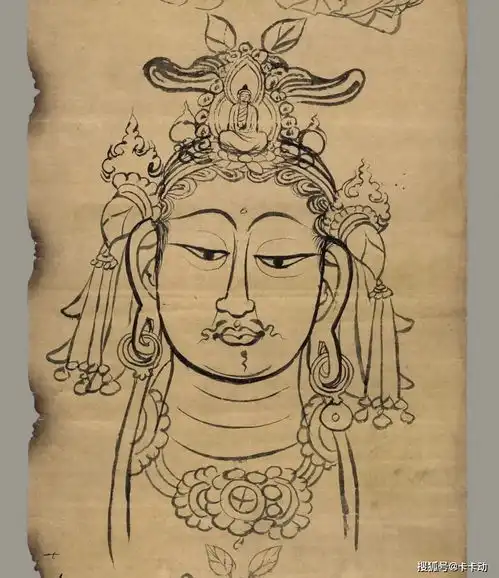 搜狐号@卡卡动